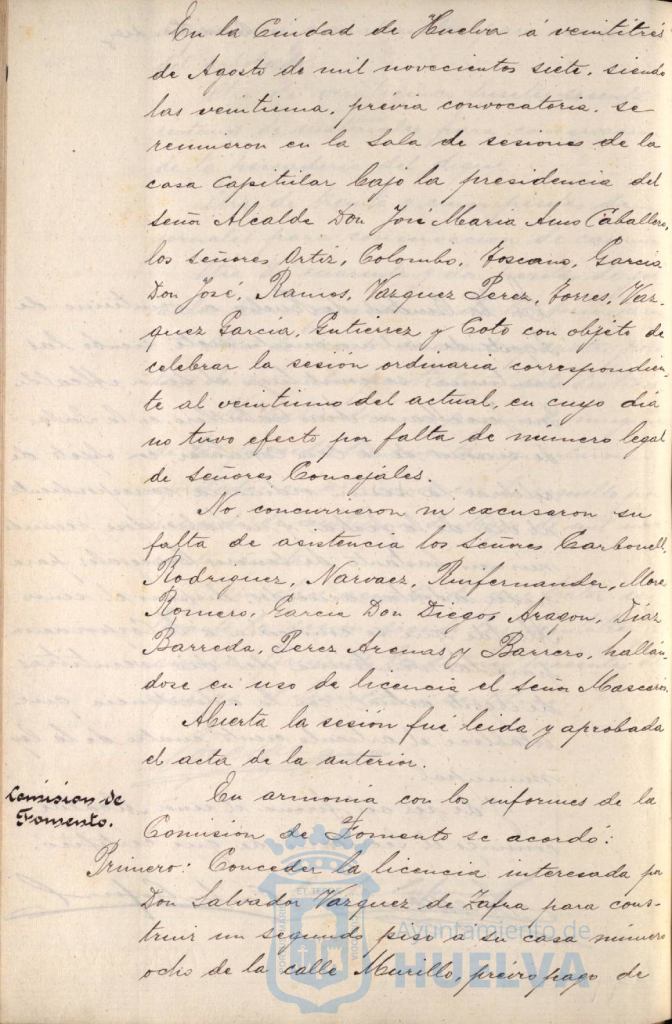 En la Ciudad de Huelva á veintitres
de Agosto de mil novecientos siete, siendo
las veintiuna, prévia convocatoria, se
reunieron en la Sala de sesiones de la
casa Capitular bajo la presidencia del
señor Alcalde Don José Maria Amo Caballero,
los señores Ortiz, Colombo, Toscano, Garcia
Don José, Ramos, Vazquez Perez, Torres, Vaz-
quez Garcia, Gutierrez y Coto con objeto de
celebrar la sesión ordinaria correspondien-
te al veintiuno del actual, en cuyo dia
no tuvo efecto por falta de número legal
de señores Concejales.
No concurrieron ni excusaron su
falta de asistencia los señores Carbonell,
Rodriguez, Narvaez, Ruifernandez, More
Romero, Garcia Don Diego, Aragon, Diaz
Barreda, Perez Arenas y Barrero, hallan-
dose en uso de licencia el señor Mascaros.
Abierta la sesión fué leida y aprobada
el acta de la anterior.
Comision de
Fomento.
En armonia con los informes de la
Comisión de Fomento se acordó:
Primero: Conceder la licencia interesada por
Don Salvador Vazquez de Zafra para cons-
truir un segundo piso a su casa número
ocho de la calle Murillo, prévio pago de
Ayuntamiento de
HUELVA